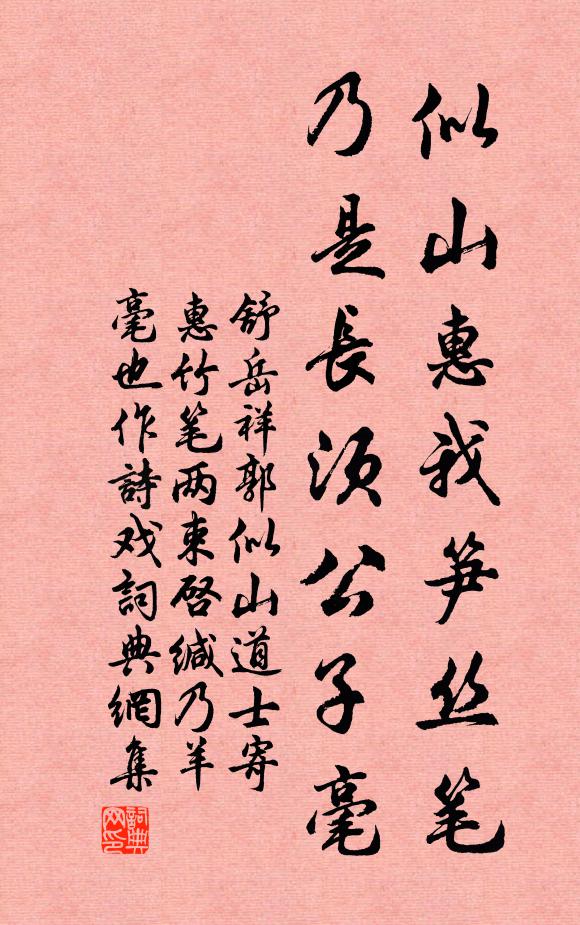 似山惠我笋丝笔
乃是長须公子毫
舒岳祥郭似山道士寄
惠竹笔两束启缄乃羊
毫也作詩戏詞典網集
詞典网印